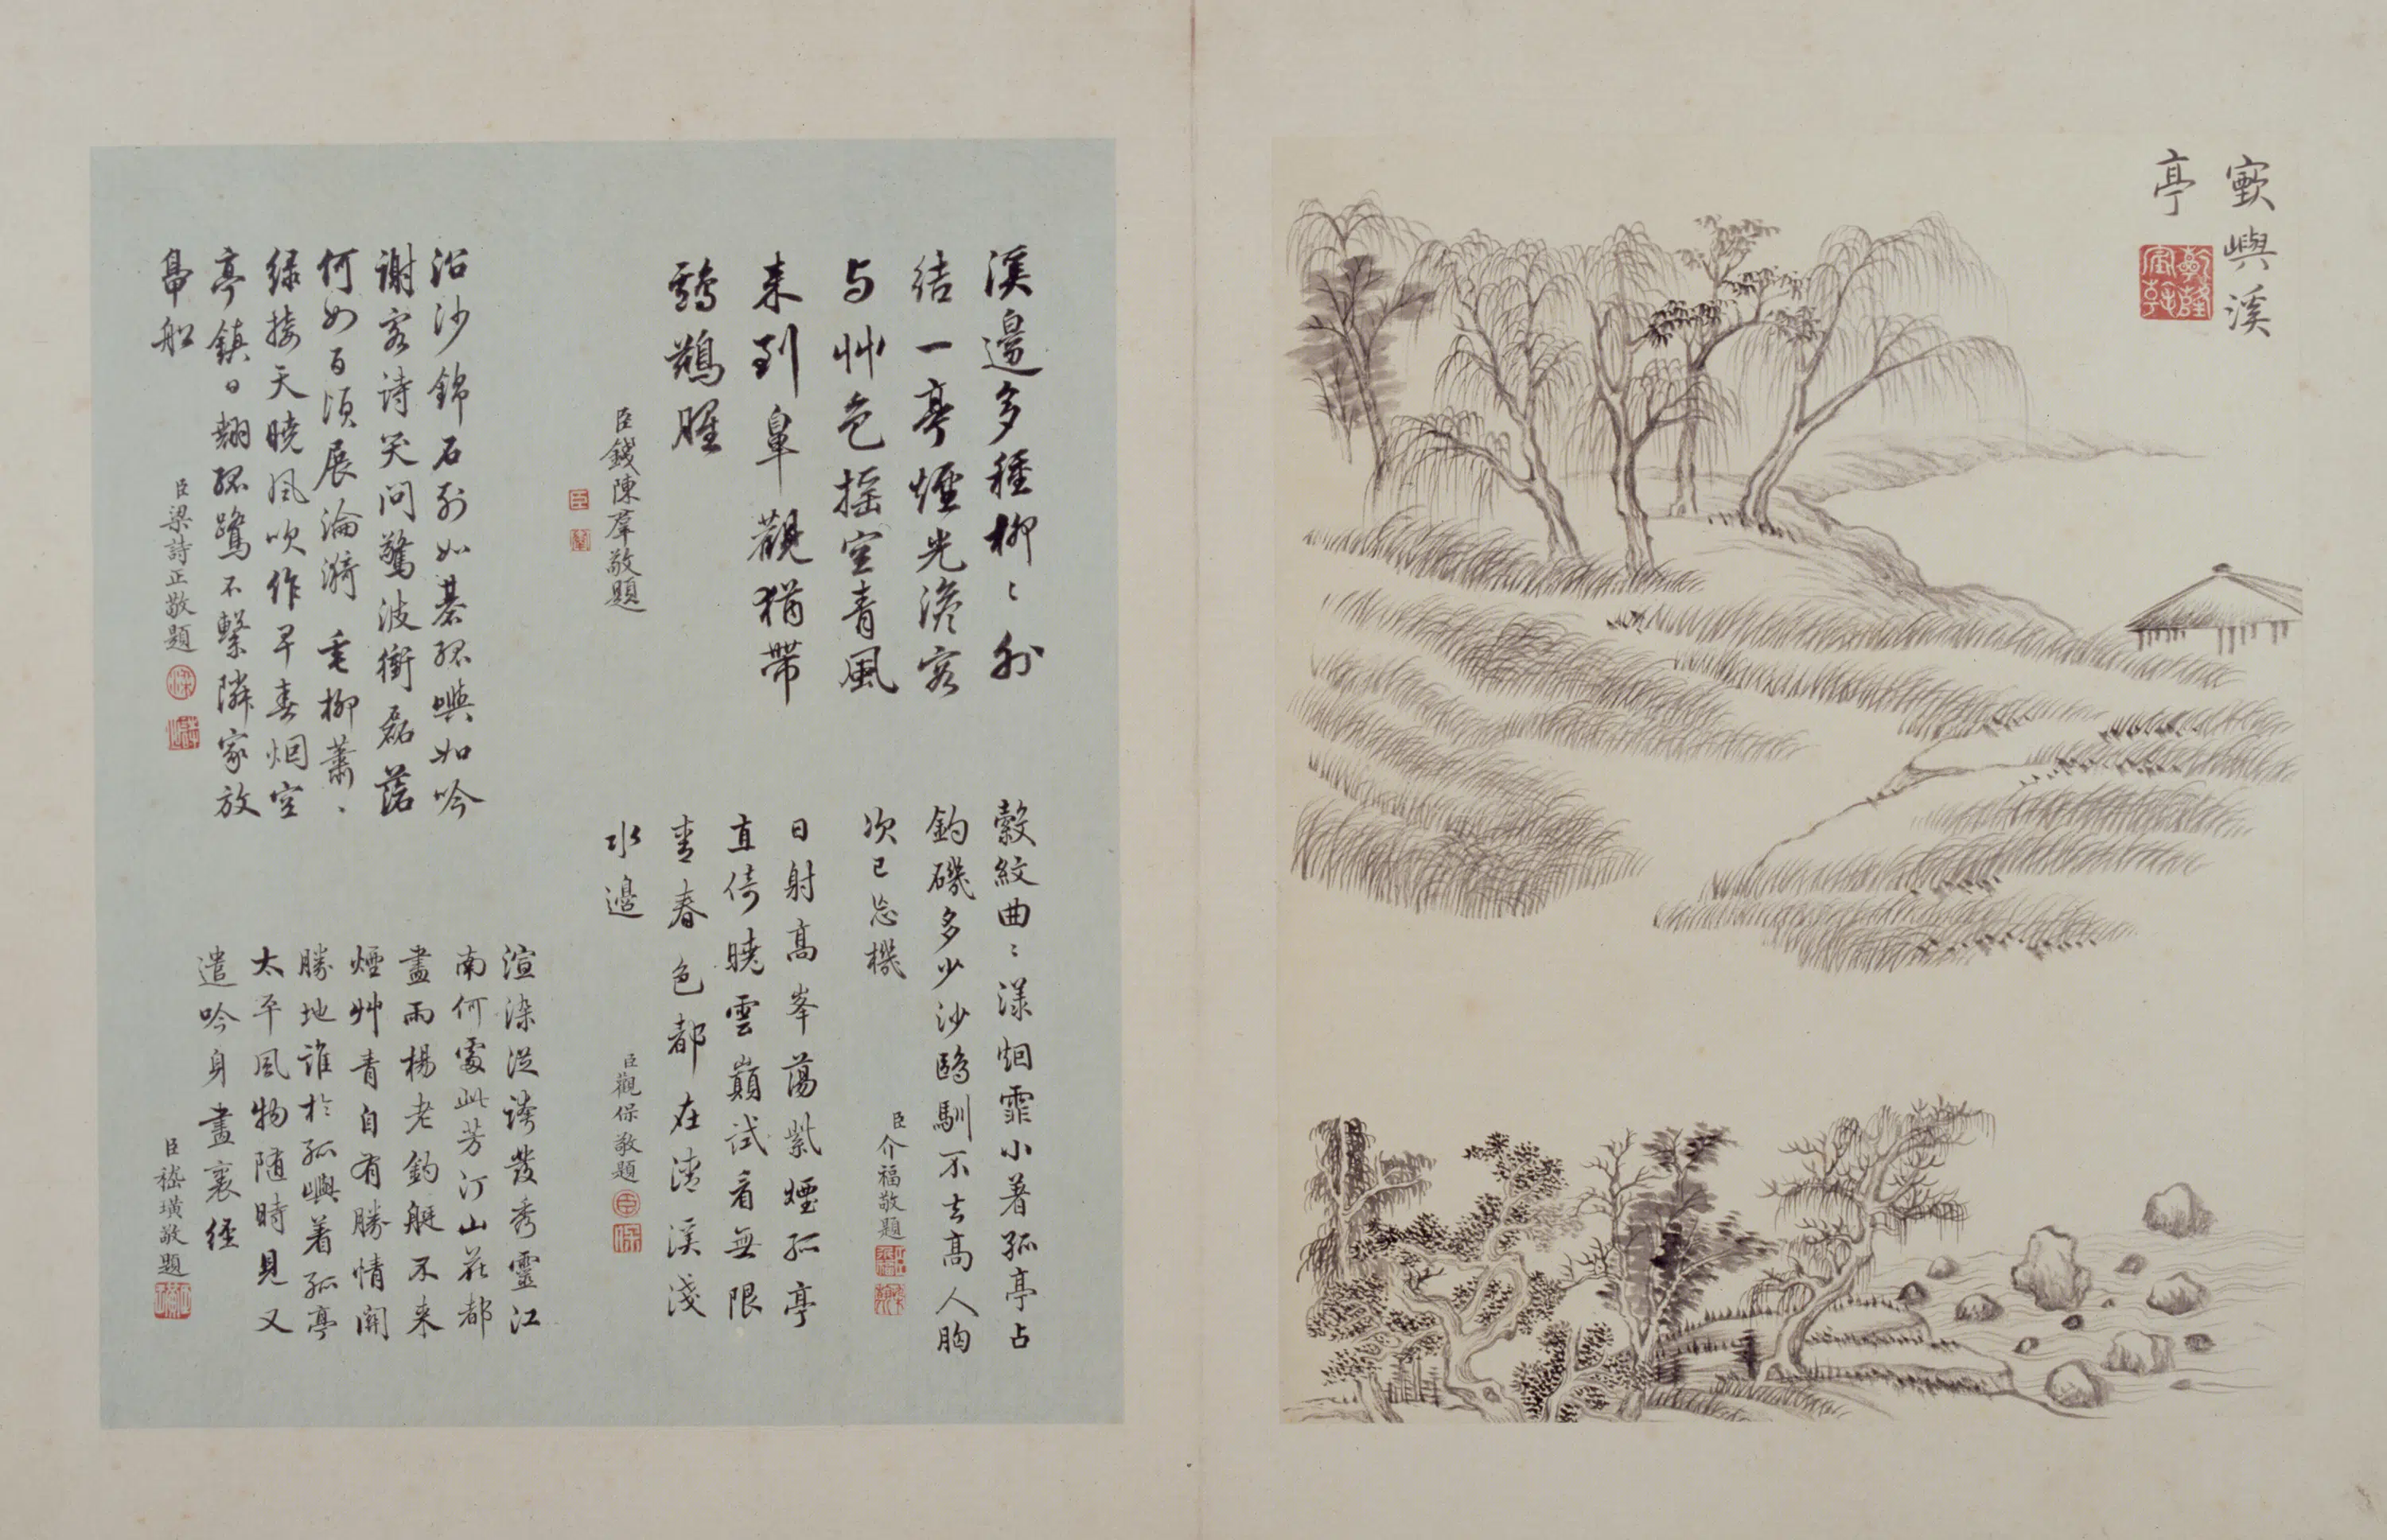 嶔嶼溪
亭
乾隆
宸翰
溪邊多種柳〻外
結一亭煙光澹客
与艸色搖空青風
来到皐觀猶帶
鷀鵜腥
臣錢陳羣敬題
縠紋曲〻漾烟霏小著孤亭占
釣磯多少沙鷗馴不去高人胸
次已忘機
臣介福敬題
日射高峯蕩紫煙孤亭
直倚曉雲巔試看無限
青春色都在清溪淺
水邊
臣觀保敬題
沿沙錦石列如碁孤嶼如吟
謝客詩笑问驚波衝磊落
何如百頃展淪漪毛柳蕭〻
绿接天曉风吹作早春烟空
亭鎮日翹孤鷺不繫隣家放
臣梁詩正敬題
渲染從誇發秀靈江
南何處此芳汀山花都
盡雨楊老釣艇不来
煙艸青自有勝情開
勝地誰於孤嶼着孤亭
太平风物随時見又
遣吟身畫裏經
臣嵇璜敬題